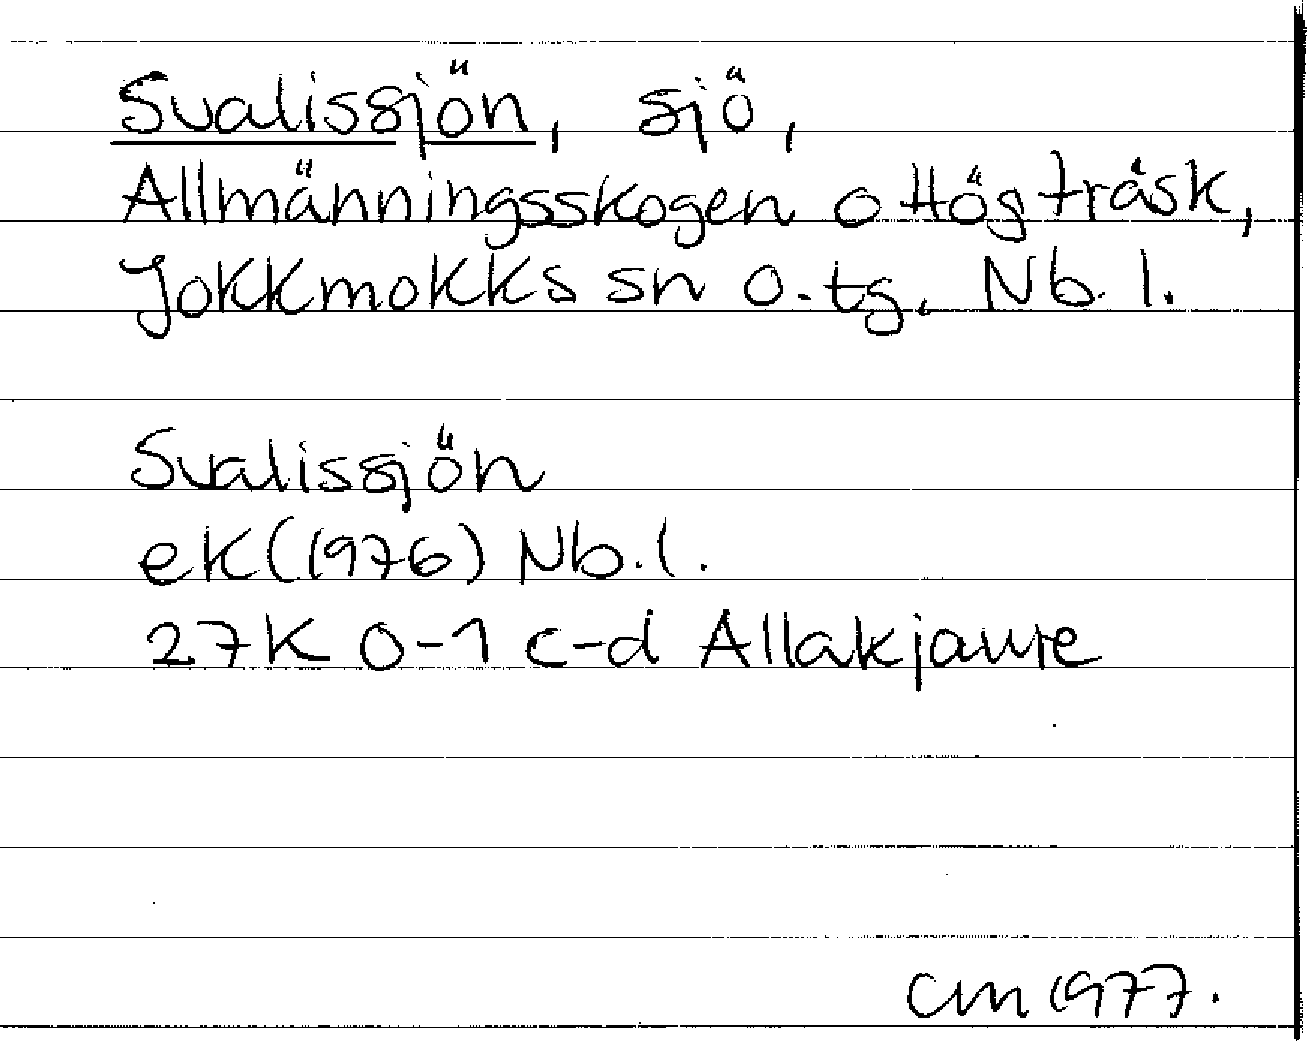 Svalissjön, sjö,
Allmänningsskogen o Högträsk,
Jokkmokks sn o. tg. Nb. l.
Svalissjön
ek (1976) Nb. l.
27K 0-1 c-d Allakjaure
CM 1977.